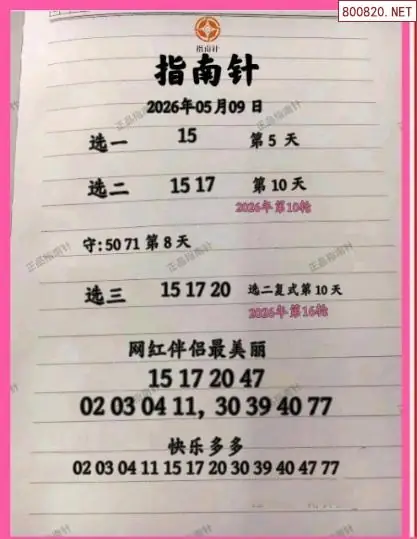 800820.NET
指南针
指南针
2026年05月09日
选一 15 第5天
选二 15 17 第10天
2026年第10轮
守:50 71 第8天
选三 15 17 20 选二复式第10天
2026年第16轮
网红伴侣最美丽
15 17 20 47
02 03 04 11, 30 39 40 77
快乐多多
02 03 04 11 15 17 20 30 39 40 47 77
正品指南针
正品指南针
正品指南针
正品指南针
正品指南针
正品指南针